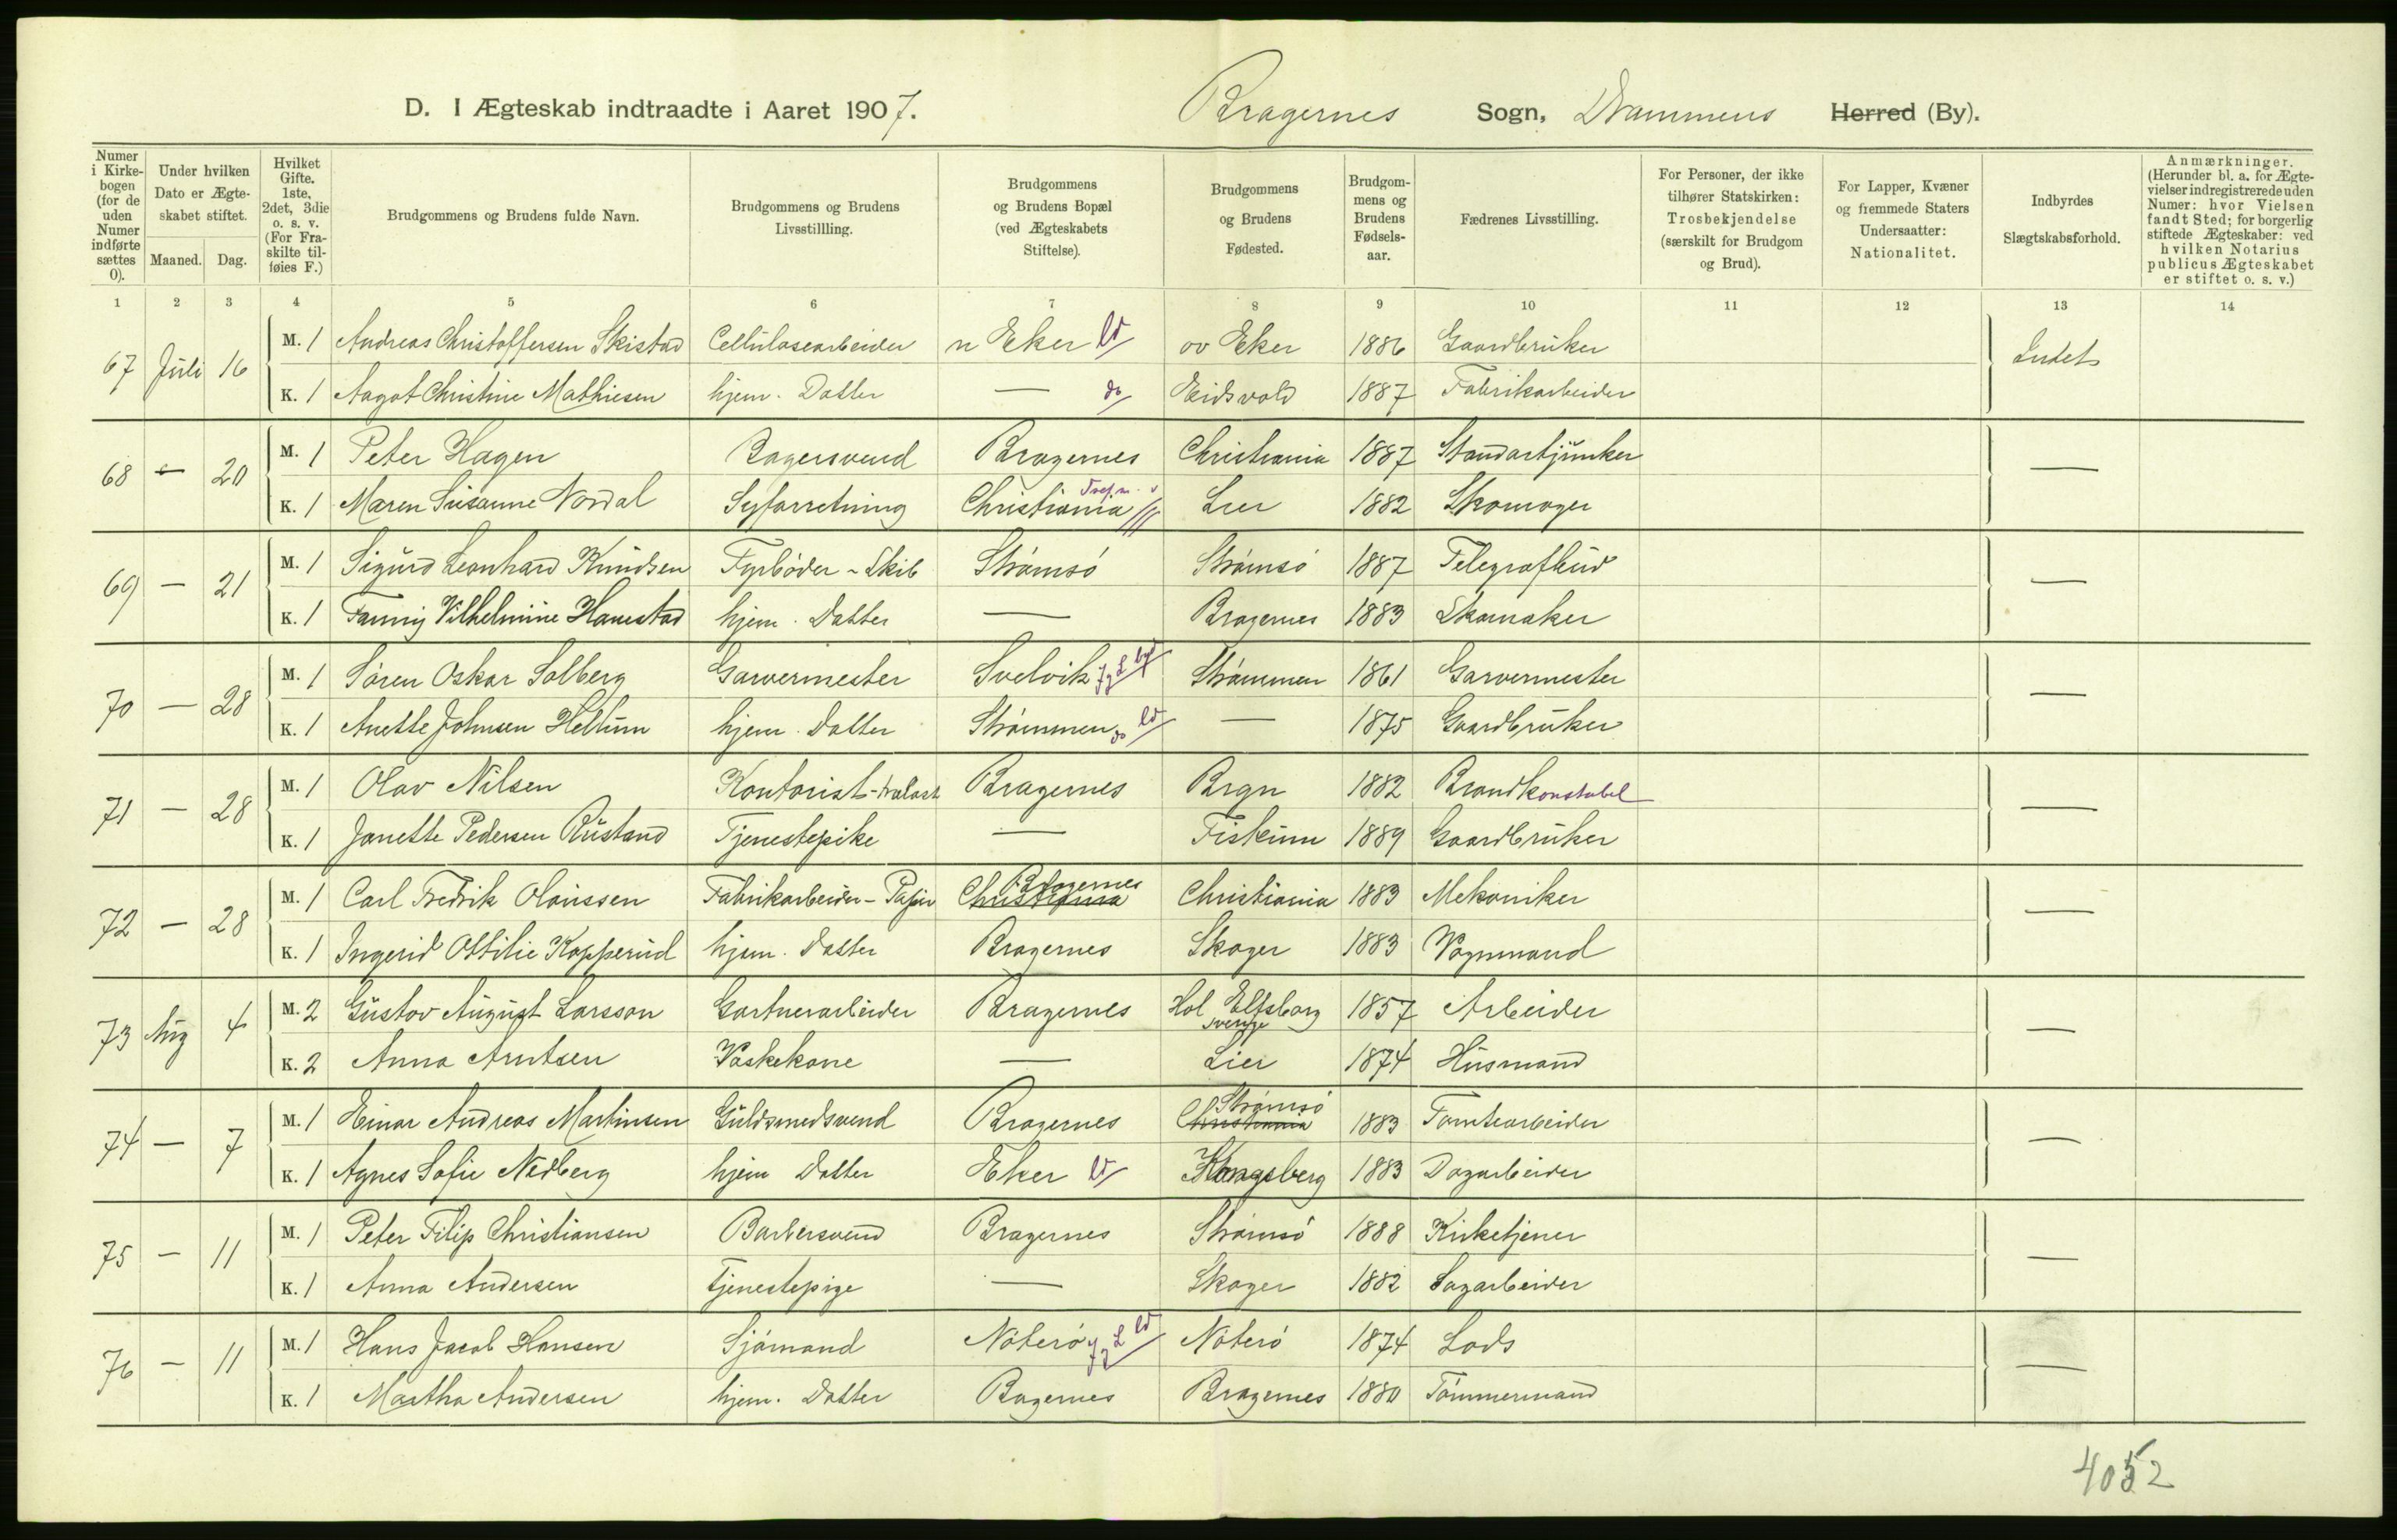 D. I Ægteskab indtraadte i Aaret 1907. Bragernes Sogn, Drammens Herred (By).
Numer i Kirkebogen (for de uden Numer indførte sættes 0). | Under hvilken Dato er Ægteskabet stiftet. Maaned. Dag. | Hvilket Gifte. 1ste, 2det, 3die o. s. v. (For Fraskilte tilføies F.) | Brudgommens og Brudens fulde Navn. | Brudgommens og Brudens Livsstillling. | Brudgommens og Brudens Bopæl (ved Ægteskabets Stiftelse). | Brudgommens og Brudens Fødested. | Brudgommens og Brudens Fødselsaar. | Fædrenes Livsstilling. | For Personer, der ikke tilhører Statskirken: Trosbekjendelse (særskilt for Brudgom og Brud). | For Lapper, Kvæner og fremmede Staters Undersaatter: Nationalitet. | Indbyrdes Slægtskabsforhold. | Anmærkninger. (Herunder bl. a. for Ægtevielser indregistrerede uden Numer: hvor Vielsen fandt Sted; for borgerlig stiftede Ægteskaber: ved hvilken Notarius publicus Ægteskabet er stiftet o. s. v.)
1 2 3 4 5 6 7 8 9 10 11 12 13 14
67 Juli 16 M. 1 Andreas Christoffersen Skistad Cellulosearbeider n Eker ld ov Eker 1886 Gaardbruker Intet
K. 1 Aagot Christine Mathiesen hjem. Datter — do Eidsvold 1887 Fabrikarbeider
68 — 20 M. 1 Peter Hagen Bagersvend Bragernes Christiania 1887 Standartjunker —
K. 1 Maren Susanne Nordal Syforretning Christiania Lier 1882 Skomager
69 — 21 M. 1 Sigurd Leonhard Knudsen Fyrbøder - Skib Strømsø Strømsø 1887 Telegrafbud —
K. 1 Fanny Vilhelmine Hanestad hjem. Datter — Bragernes 1883 Skomaker
70 — 28 M. 1 Søren Oskar Solberg Garvermester Svelvik Strømmen 1861 Garvermester —
K. 1 Anette Johnsen Hellum hjem. Datter Strømmen do ld — 1875 Gaardbruker
71 — 28 M. 1 Olav Nilsen Kontorist - trælast Bragernes Brgn 1882 Brandkonstabel —
K. 1 Janette Pedersen Rustand Tjenestepike — Fiskum 1889 Gaardbruker
72 — 28 M. 1 Carl Fredrik Olaussen Fabrikarbeider - Papir Christiania Bragernes Christiania 1883 Mekaniker —
K. 1 Ingerid Ottilie Kopperud hjem. Datter Bragernes Skoger 1883 Vognmand
73 Aug 4 M. 2 Gustav August Larsson Gartnerarbeider Bragernes Hol Elfsborg Sverige 1857 Arbeider —
K. 2 Anna Arntsen Vaskekone — Lier 1874 Husmand
74 — 7 M. 1 Einar Andreas Martinsen Guldsmedsvend Bragernes Christiania Strømsø 1883 Tomtearbeider —
K. 1 Agnes Sofie Nedberg hjem Datter Eker ld Kongsberg 1883 Dagarbeider
75 — 11 M. 1 Peter Filip Christiansen Barbersvend Bragernes Strømsø 1888 Kirketjener —
K. 1 Anna Andersen Tjenestepige — Skoger 1882 Sagarbeider
76 — 11 M. 1 Hans Jacob Hansen Sjømand Nøterø Nøterø 1874 Lods —
K. 1 Martha Andersen hjem. Datter Bagernes Bragernes 1880 Tømmermand
4052